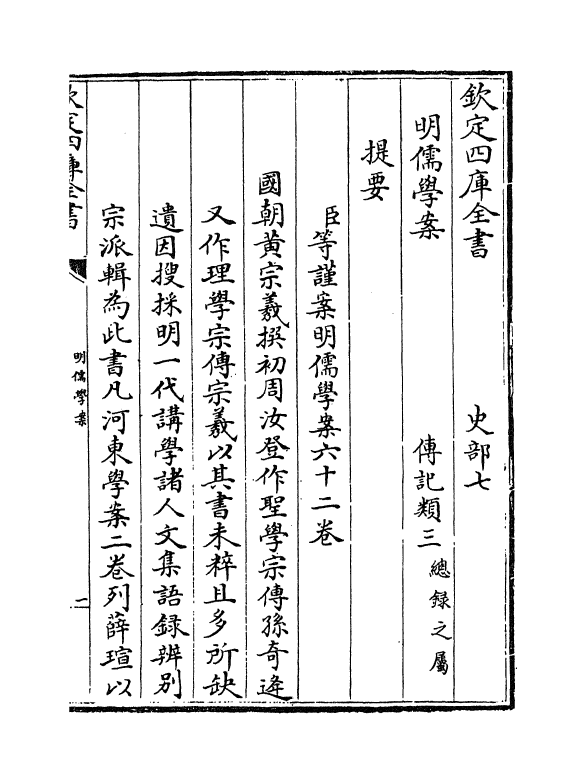 欽定四庫全書　史部七
明儒學案　傳記類三總錄之屬
提要
臣等謹案明儒學案六十二卷
國朝黃宗羲撰初周汝登作聖學宗傳孫奇逄
又作理學宗傳宗羲以其書未粹且多所缺
遺因搜採明一代講學諸人文集語錄辨别
宗派輯為此書凡河東學案二卷列薛瑄以
欽定四庫全書
明儒學案
一